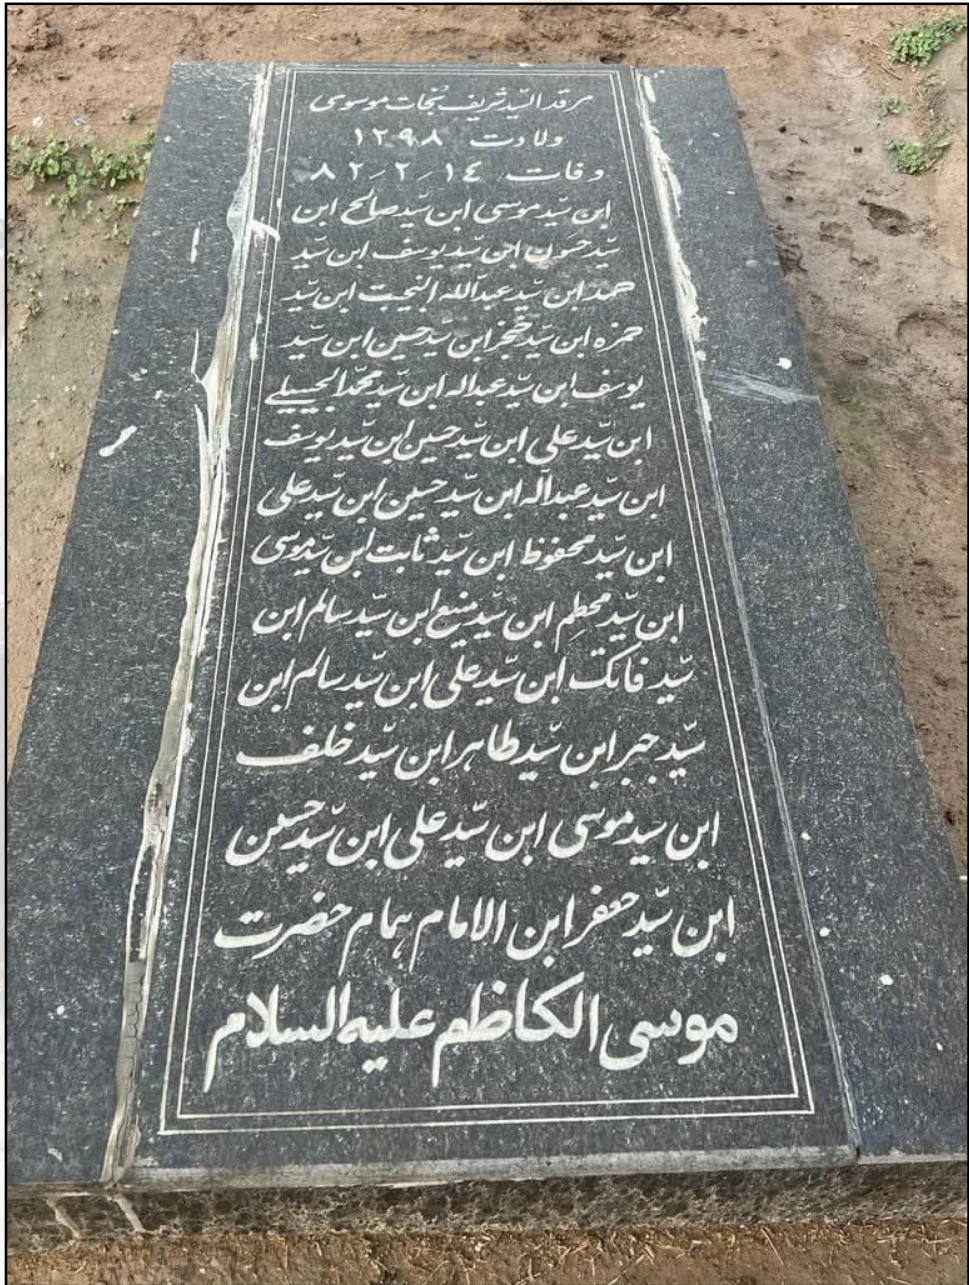 مرقد السّید شریف نجات موسوی
ولادت ۱۲۹۸
وفات ۸۲٫۲٫۱٤
ابن سّید موسی ابن سّید صالح ابن
سّید حسون ابن سّید یوسف ابن سّید
حمد ابن سّید عبدالله النجت ابن سّید
حمزه ابن سّید خنجر ابن سّید حسین ابن سّید
یوسف ابن سّید عبداله ابن سّید محمّد
ابن سّید علی ابن سّید حسین ابن سّید یوسف
ابن سّید عبداله ابن سّید حسین ابن سّید علی
ابن سّید محفوظ ابن سّید ثابت ابن سّید موسی
ابن سّید محطم ابن سّید منیع ابن سّید سالم ابن
سّید فاتک ابن سّید علی ابن سّید سالم ابن
سّید جبر ابن سّید طاهر ابن سّید خلف
ابن سید موسی ابن سّید علی ابن سّید حسین
ابن سّید جعفر ابن الامام همام حضرت
موسی الکاظم علیه السلام